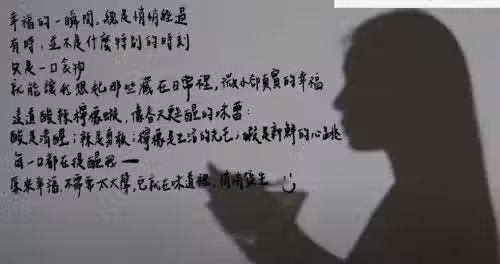 幸福的一瞬間,總是悄悄經過
有時,並不是什麼特別的時刻
只是一口食物
就能讓我想起那些藏在日常裡,微小卻真實的幸福
這道酸辣檸檬蝦,像春天甦醒的味蕾:
酸是清醒;辣是勇敢;檸檬是生活的光芒;蝦是新鮮的心跳
每一口都在提醒我—
原來幸福,不需要太大聲,它就在味道裡,悄悄發生